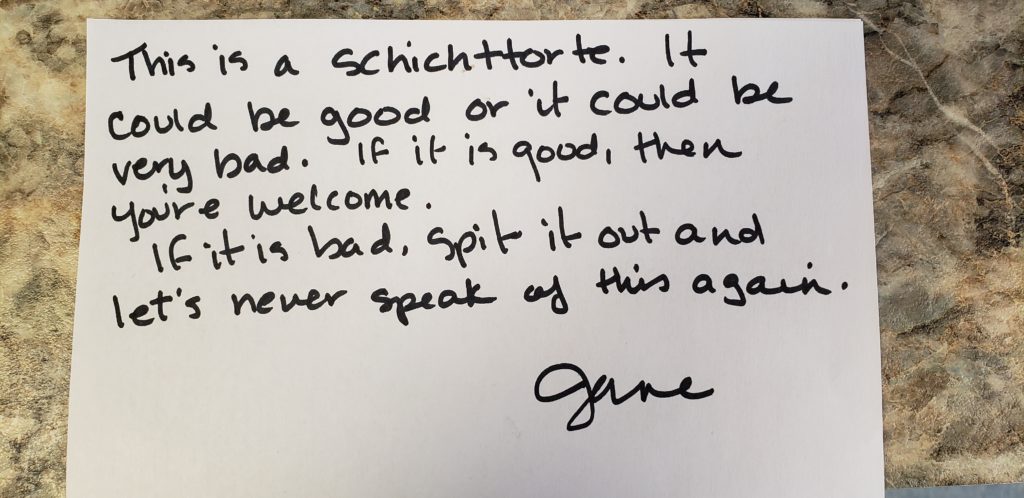 This is a Schichttorte. It
could be good or it could be
very bad. If it is good, then
you're welcome.
If it is bad, spit it out and
let's never speak of this again.
Jane